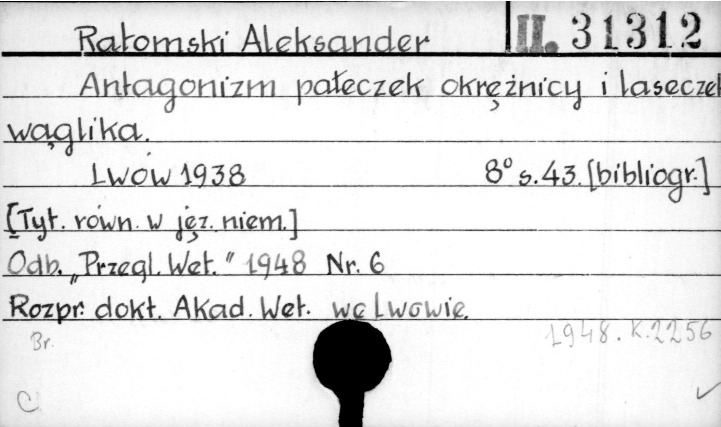 Ratomski Aleksander II. 31312
Antagonizm pałeczek okrężnicy i laseczek
wąglika.
Lwów 1938 8° s. 43. [bibliogr.]
[Tyt. równ. w jęz. niem.]
Odb. „Przegl. Wet." 1948 Nr. 6
Rozpr. dokt. Akad. Wet. we Lwowie.
Br. 1948. K. 2256
C